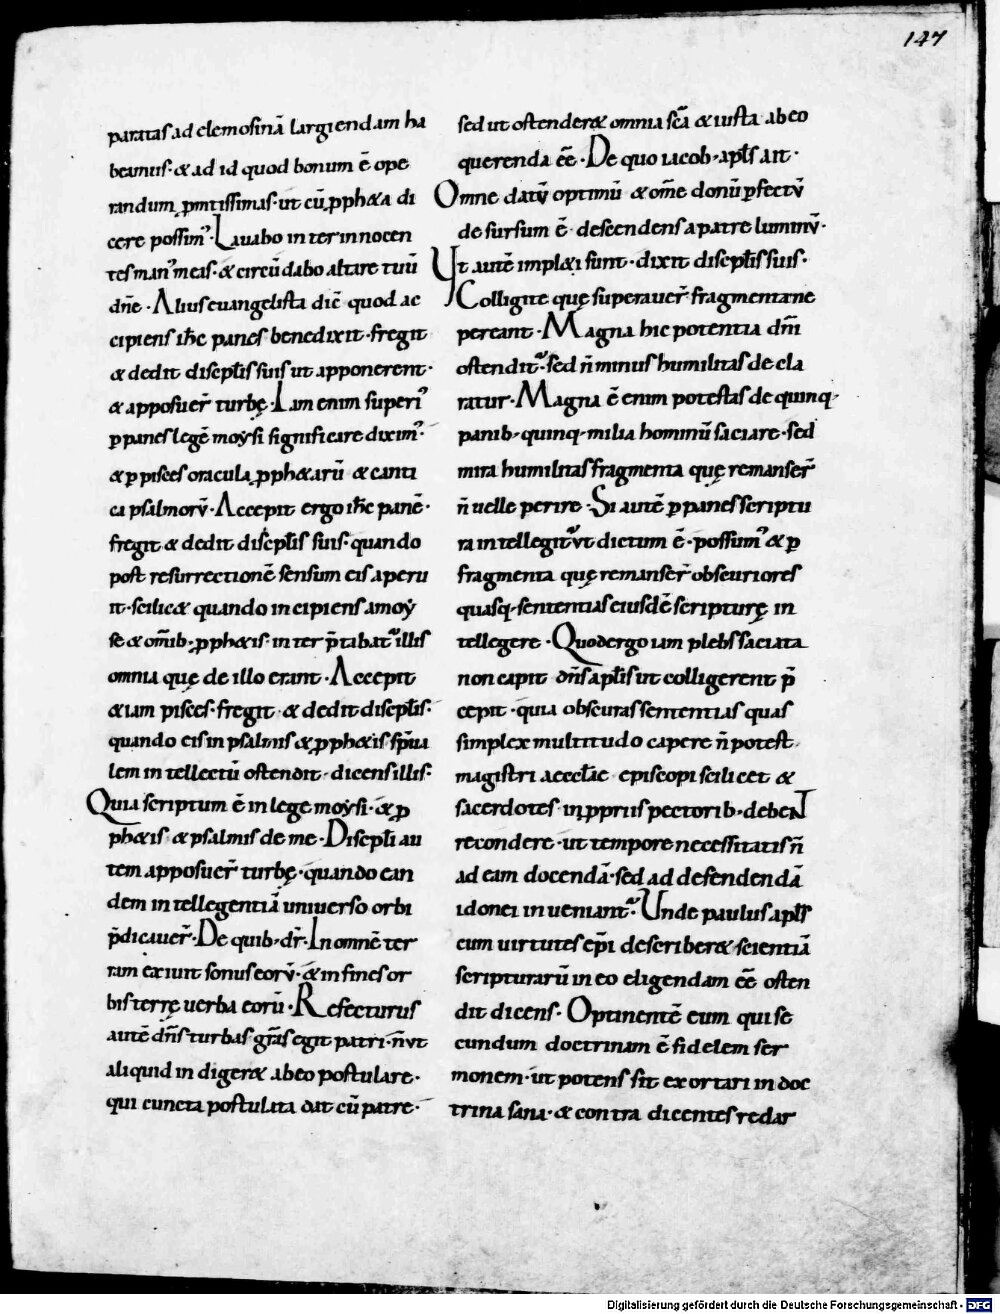 147
paratas ad elemosinā largiendam ha
beamus· & ad id quod bonum ē ope
randum p̄mtissimas· ut cū ꝓph&a di
cere possim᾽· Lauabo inter innocen
tes man᾽ meas· & circūdabo altare tuū
dn̄e· Alius euangelista dic̄ quod ac
cipiens ih̄c panes benedixit· fregit
& dedit discipl̄is suis ut apponerent·
& apposuer̄ turbę· Iam enim superi᾽
ꝑ panes legē moysi significare dixim᾽·
& ꝑ pisces oracula ꝓph&arū & canti
ca psalmorū· Accepit ergo ih̄c panē·
fregit & dedit discipl̄is suis· quando
post resurrectionē sensum eis aperu
it· scilic& quando incipiens a moy
se & om̄ib; ꝓph&is· inter p̄tabat᾽ illis
omnia quę de illo erant· Accepit
&iam pisces· fregit & dedit discipl̄is·
quando eis in psalmis & ꝓph&is sp̄ua
lem intellectū ostendit· dicens illis·
Quia scriptum ē in lege moysi· & ꝓ
ph&is & psalmis de me· Discipl̄i au
tem apposuer̄ turbę· quando ean
dem intellegentiā uniuerso orbi
p̄dicauer̄· De quib; dr̄· In omnē ter
ram exiuit sonus eorū· & in fines or
bis terrę uerba eorū· Refecturus
autē dn̄s turbas gr̄as egit patri· n̄ ut
aliquid indiger& ab eo postulare·
qui cuncta postulata dat cū patre·
sed ut ostender& omnia sc̄a & iusta ab eo
querenda ēē· De quo iacob; apl̄s ait·
Omne datū optimū & om̄e donū ꝑfectū
desursum ē· descendens a patre luminū·
Ut autē impl&i sunt· dixit discipl̄is suis·
Colligite quę superauer̄ fragmenta ne
pereant· Magna hic potentia dn̄i
ostendit᾽· sed n̄ minus humilitas decla
ratur· Magna ē enim potestas de quinq;
panib; quinq; milia hominū saciare· sed
mira humilitas fragmenta quę remanser̄
n̄ uelle perire· Si autē ꝑ panes scriptu
ra intellegit᾽ ut dictum ē· possum᾽ & ꝑ
fragmenta quę remanser̄ obscuriores
quasq; sententias eiusdē scripturę in
tellegere· Quod ergo iam plebs saciata
non capit dn̄s apl̄is ut colligerent p̄
cepit· quia obscuras sententias quas
simplex multitudo capere n̄ potest·
magistri aeccl̄ae episcopi scilicet &
sacerdotes· in ꝓpriis pectorib; debent
recondere· ut tempore necessitatis n̄
ad eam docendā· sed ad defendendā
idonei inueniant᾽· Unde paulus apl̄s
cum uirtutes ep̄i describer& scientiā
scripturarū in eo eligendam ēē osten
dit dicens· Optinentē eum qui se
cundum doctrinam ē fidelem ser
monem· ut potens sit exortari in doc
trina sana· & contradicentes redar
Digitalisierung gefördert durch die Deutsche Forschungsgemeinschaft - DFG